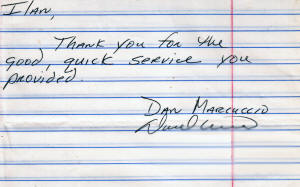 Ilan,
Thank you for the
good, quick service you
provided.
Dan Marcuccio